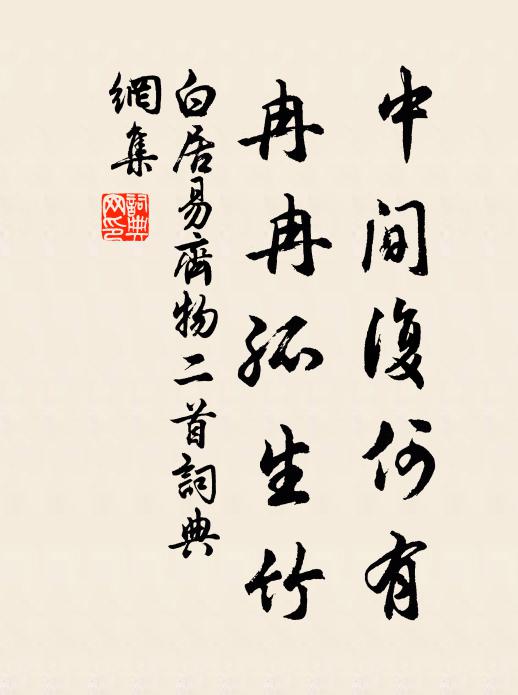 中間復何有
冉冉孤生竹
白居易齊物二首詞典
網集
詞典
网印